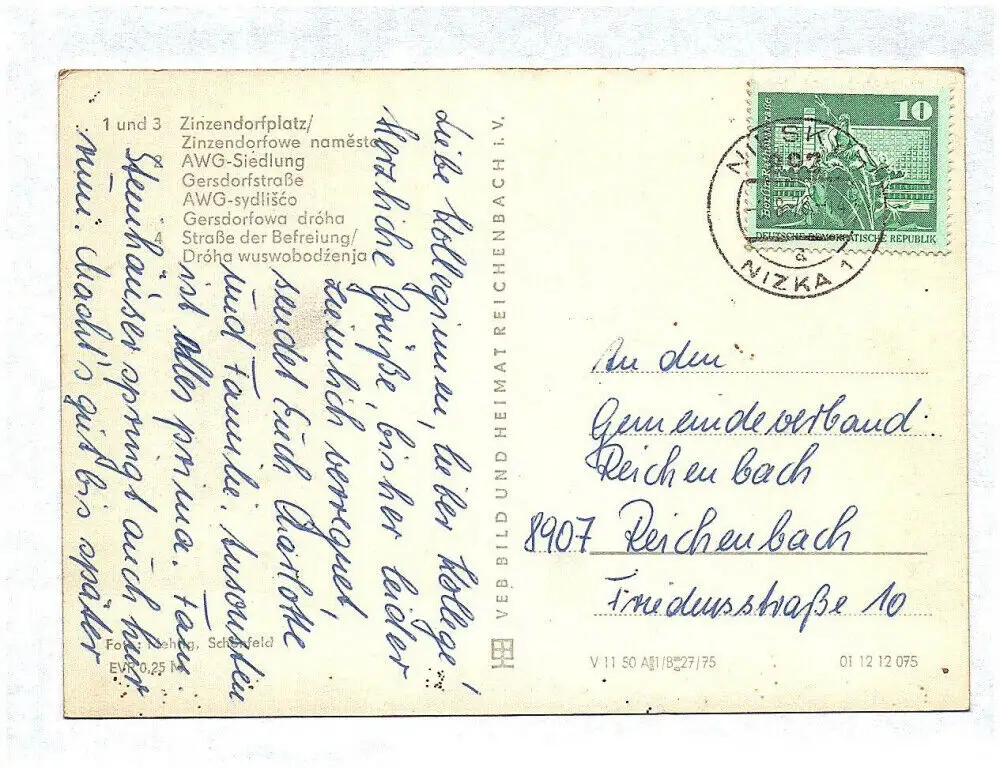 1 und 3 Zinzendorfplatz/
Zinzendorfowe naměsto
AWG-Siedlung
Gersdorfstraße
AWG-sydlišćo
Gersdorfowa dróha
4 Straße der Befreiung/
Dróha wuswobodźenja
Liebe Kolleginnen, lieber Kollege!
Herzliche Grüße, bisher leider
ziemlich verregnet,
sendet Euch Charlotte
und Familie. Ansonsten
ist alles prima. Fam.
Steinhäuser springt auch hier
rum. Macht's gut bis später
Foto: Schönfeld
EVP 0,25 M
VEB BILD UND HEIMAT REICHENBACH i. V.
10
Berlin
DEUTSCHE DEMOKRATISCHE REPUBLIK
NIESKY 1
a
NIZKA 1
An den
Gemeindeverband
Reichenbach
8907 Reichenbach
Friedensstraße 10
V 11 50 27/75
01 12 12 075